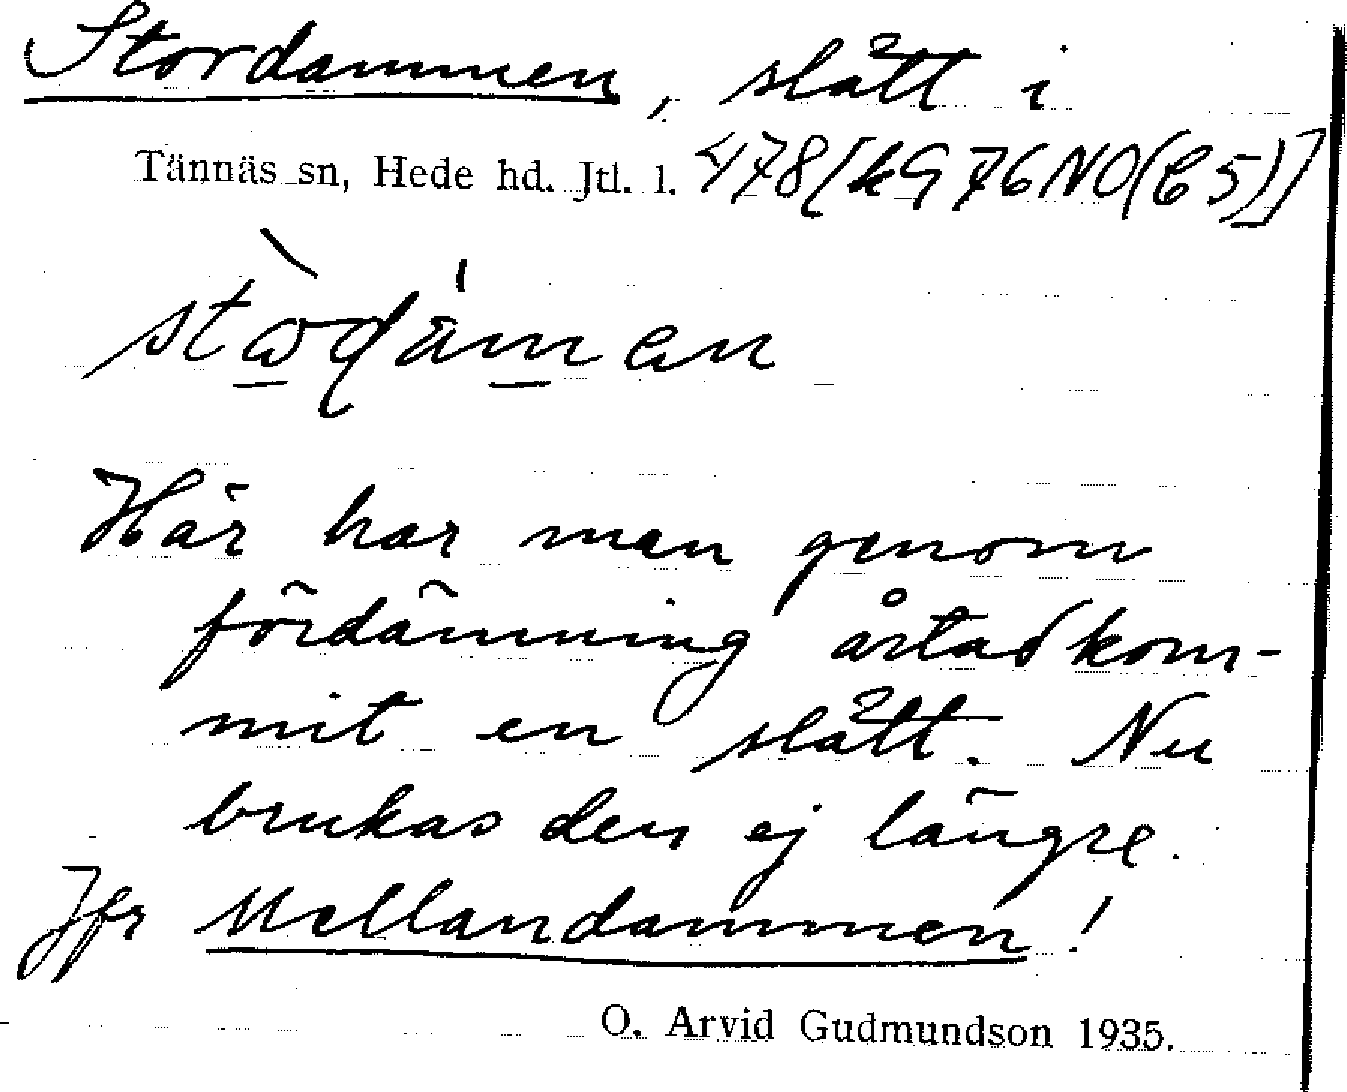 Stordammen, slått i
Tännäs sn, Hede hd. Jtl. l. 478[k976NO(C5)]
Här har man genom
fördämning åstadkom-
mit en slått. Nu
brukas den ej längre.
Jfr Mellandammen!
O. Arvid Gudmundson 1935.